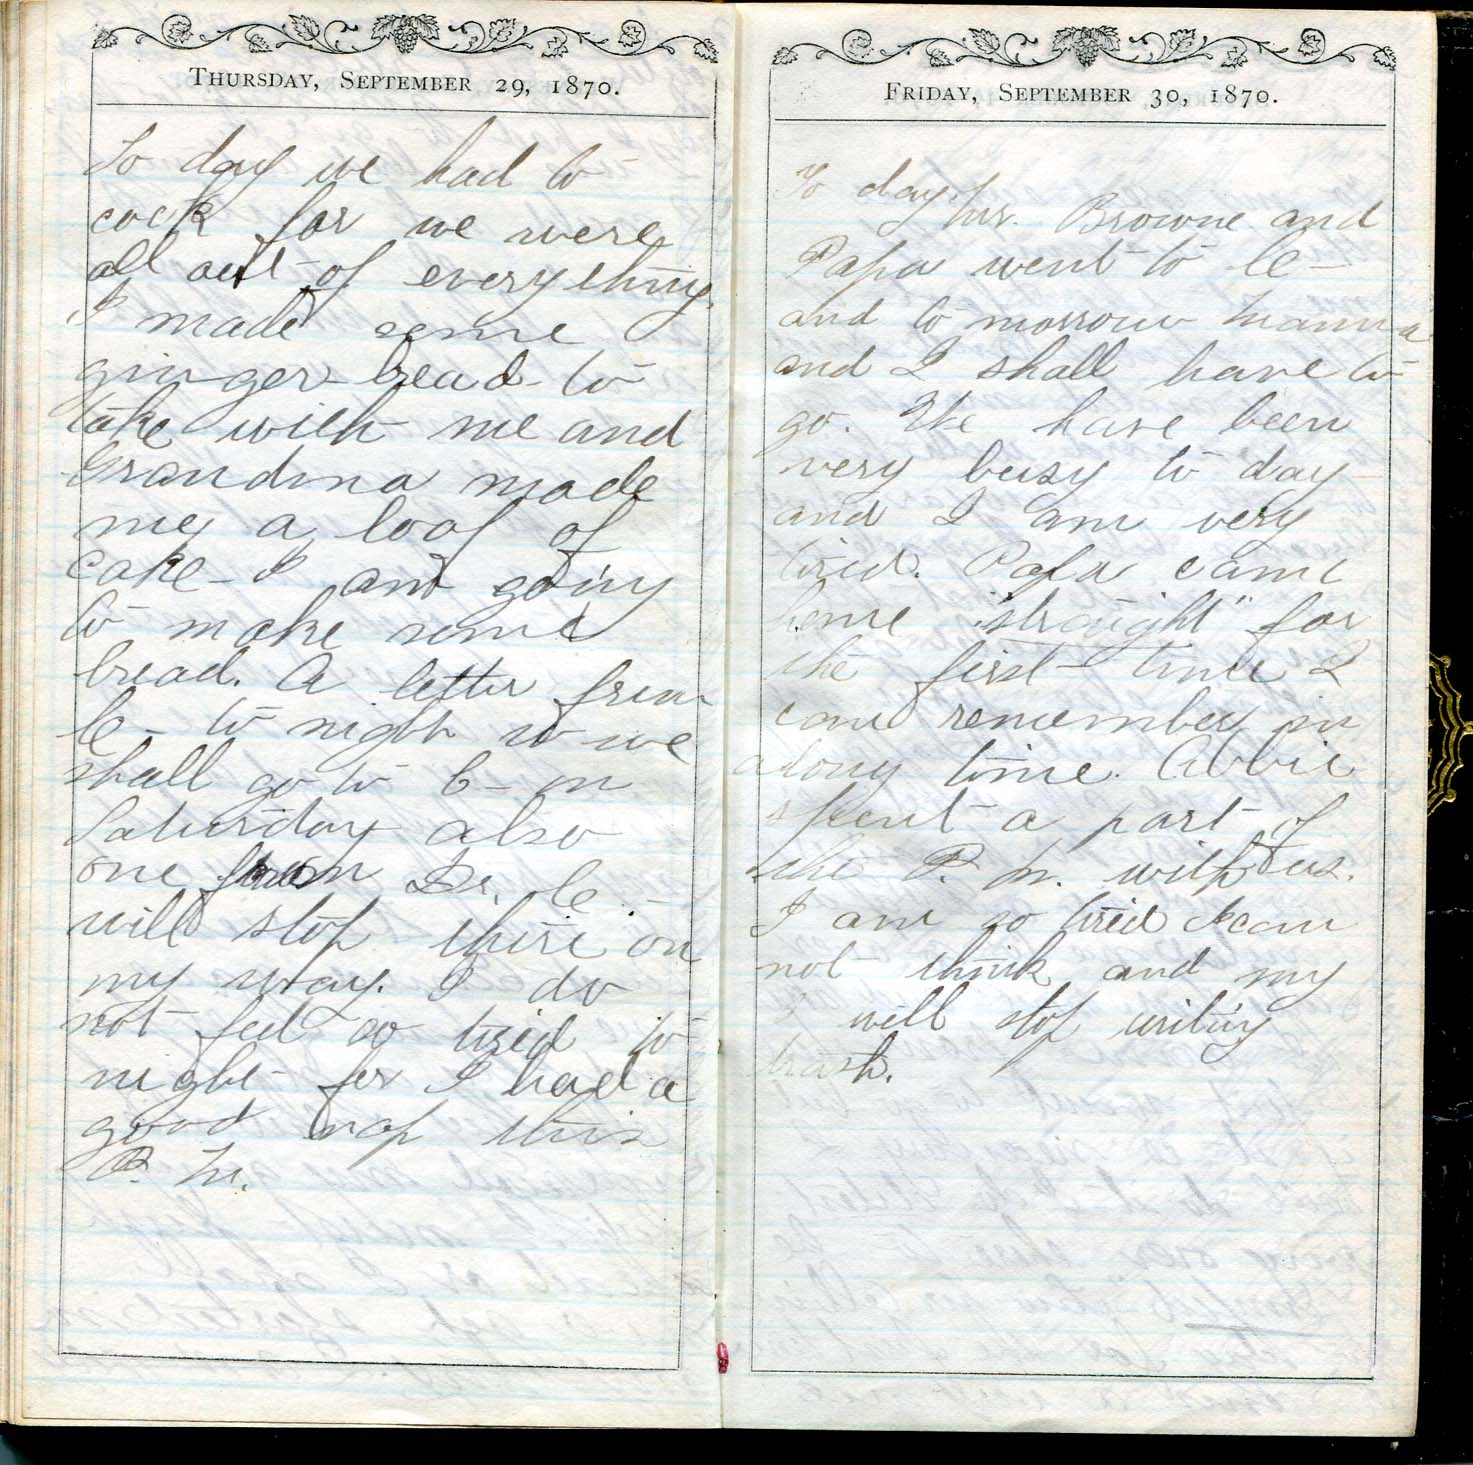 THURSDAY, SEPTEMBER 29, 1870.
To day we had to
cock for we were
all out of everything.
I made some
ginger bread to
take with me and
Grandma made
me a loaf of
cake - I am going
to make some
bread. A letter from
C - to night so we
shall go to C - on
Saturday also
one from Dr. C
will stop there on
my way. I do
not feel so tired to
night for I had a
good nap this
P. M.
FRIDAY, SEPTEMBER 30, 1870.
To day Mr. Browne and
Papa went to C -
and to morrow Mamma
and I shall have to
go. We have been
very busy to day
and I am very
tired. Papa came
home "straight" for
the first time I
can remember in
a long time. Abbie
spent a part of
the P. M. with us.
I am so tired I can
not think and my
will stop writing
trash.